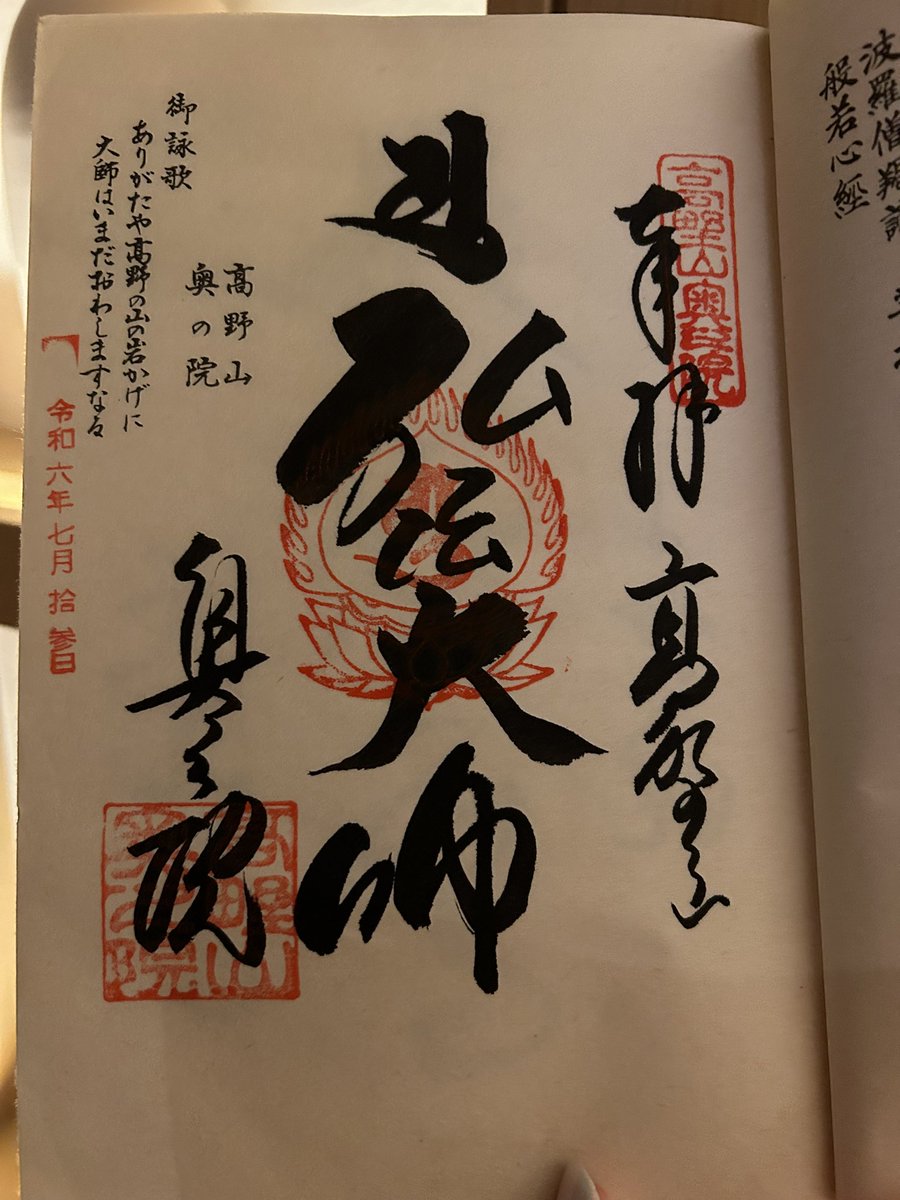 波羅僧羯諦
般若心經
高野山奥之院
奉拝 高野山
弘法大師
奥之院
高野山奥之院
高野山
奥の院
御詠歌
ありがたや高野の山の岩かげに
大師はいまだおわしますなる
令和六年七月拾参日